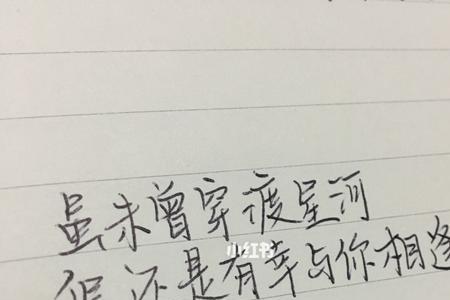 虽未曾穿渡星河
但还是有幸与你相逢
小红书